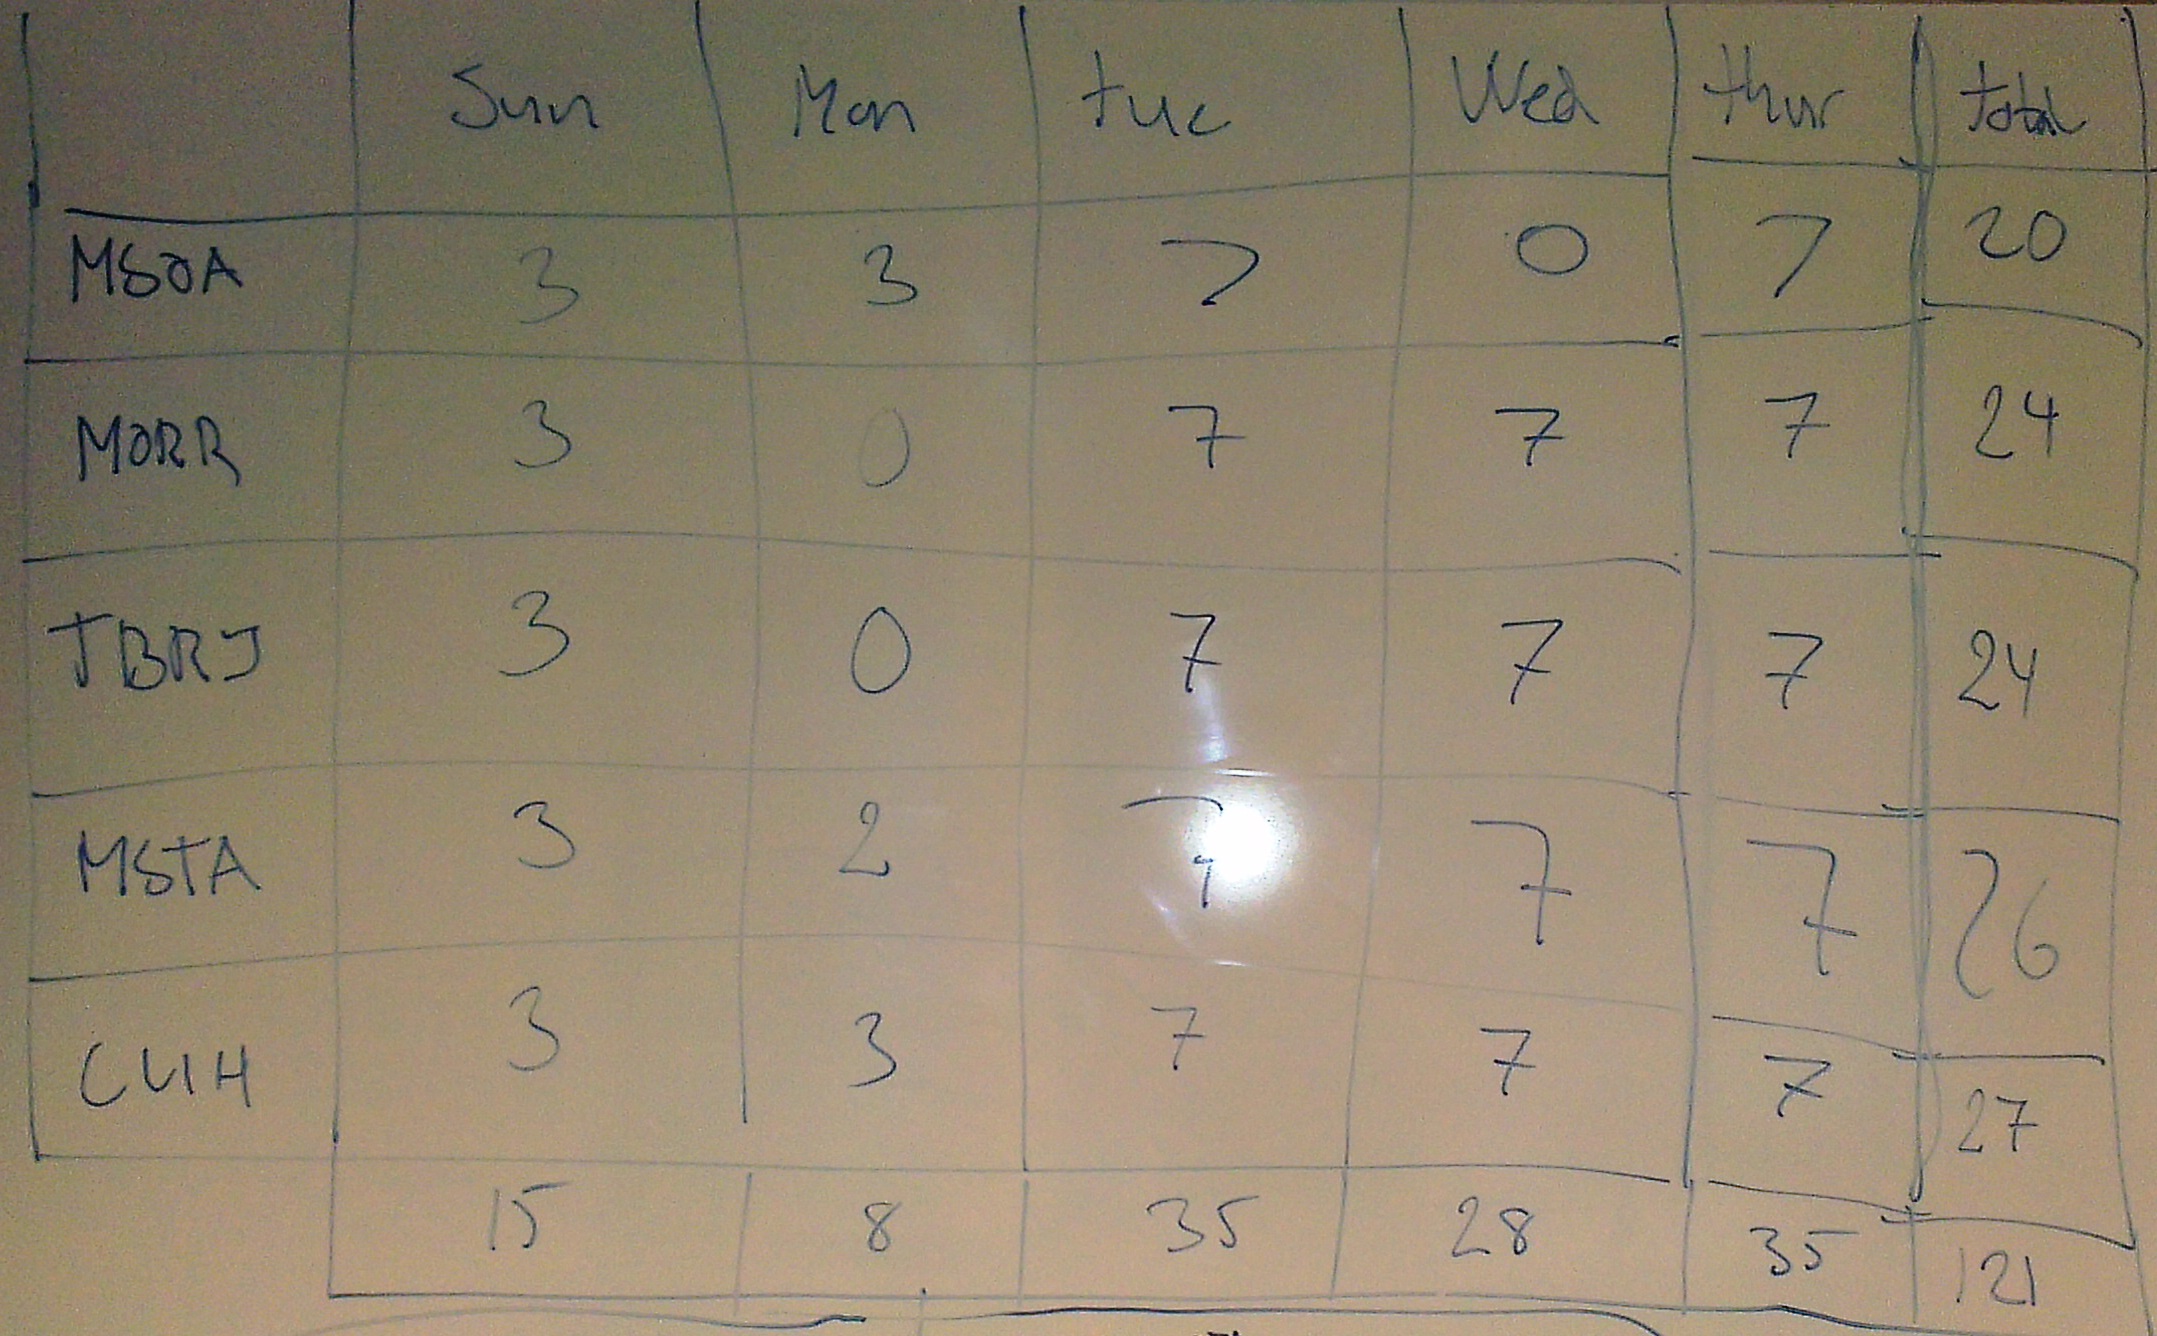 Sun Mon tue Wed thur total
MSOA 3 3 7 0 7 20
MORR 3 0 7 7 7 24
JBRJ 3 0 7 7 7 24
MSTA 3 2 7 7 7 26
CLIH 3 3 7 7 7 27
15 8 35 28 35 121